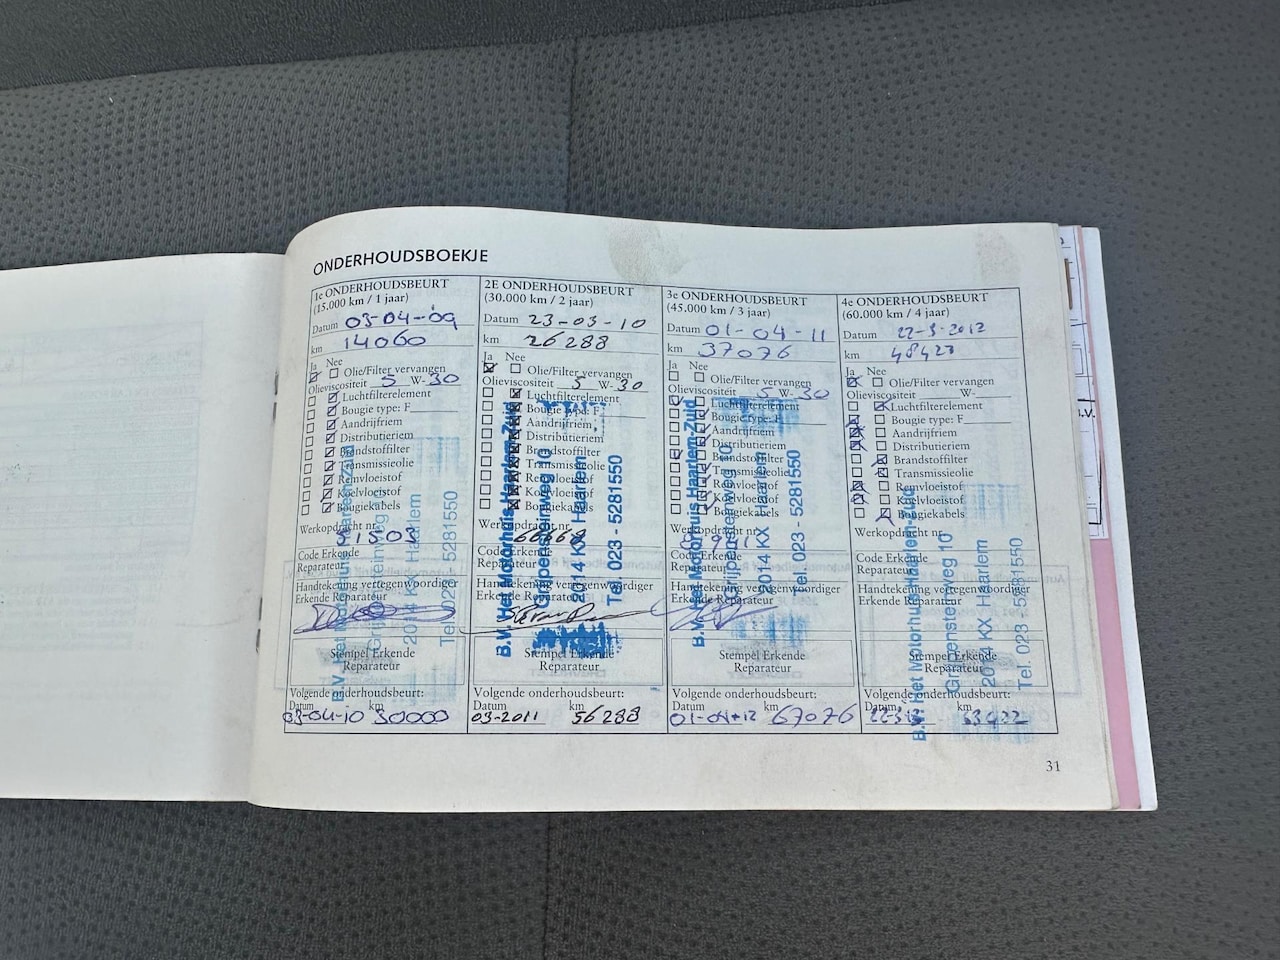 ONDERHOUDSBOEKJE
1e ONDERHOUDSBEURT
(15.000 km / 1 jaar)
Datum 03-04-09
km 14060
Ja Nee
Olie/Filter vervangen
Olieviscositeit 5 W-30
Luchtfilterelement
Bougie type: F
Aandrijfriem
Distributieriem
Brandstoffilter
Transmissieolie
Remvloeistof
Koelvloeistof
Bougiekabels
Werkopdracht nr.
Code Erkende
Reparateur
Handtekening vertegenwoordiger
Erkende Reparateur
Stempel Erkende
Reparateur
Volgende onderhoudsbeurt:
Datum km
03-04-10 30000
2E ONDERHOUDSBEURT
(30.000 km / 2 jaar)
Datum 23-03-10
km 26288
Ja Nee
Olie/Filter vervangen
Olieviscositeit 5 W-30
Luchtfilterelement
Bougie type: F
Aandrijfriem
Distributieriem
Brandstoffilter
Transmissieolie
Remvloeistof
Koelvloeistof
Bougiekabels
Werkopdracht nr.
Code Erkende
Reparateur
Handtekening vertegenwoordiger
Erkende Reparateur
Stempel Erkende
Reparateur
Volgende onderhoudsbeurt:
Datum km
03-2011 56288
B.V. Het Motorhuis Haarlem-Zuid
Grijpensteinweg 10
2014 KX Haarlem
Tel. 023 - 5281550
3e ONDERHOUDSBEURT
(45.000 km / 3 jaar)
Datum 01-04-11
km 37076
Ja Nee
Olie/Filter vervangen
Olieviscositeit 5 W-30
Luchtfilterelement
Bougie type: F
Aandrijfriem
Distributieriem
Brandstoffilter
Transmissieolie
Remvloeistof
Koelvloeistof
Bougiekabels
Werkopdracht nr.
Code Erkende
Reparateur
Handtekening vertegenwoordiger
Erkende Reparateur
Stempel Erkende
Reparateur
Volgende onderhoudsbeurt:
Datum km
01-04-12 67076
B.V. Het Motorhuis Haarlem-Zuid
Grijpensteinweg 10
2014 KX Haarlem
Tel. 023 - 5281550
4e ONDERHOUDSBEURT
(60.000 km / 4 jaar)
Datum 22-3-2012
km 48427
Ja Nee
Olie/Filter vervangen
Olieviscositeit W-
Luchtfilterelement
Bougie type: F
Aandrijfriem
Distributieriem
Brandstoffilter
Transmissieolie
Remvloeistof
Koelvloeistof
Bougiekabels
Werkopdracht nr.
Code Erkende
Reparateur
Handtekening vertegenwoordiger
Erkende Reparateur
Stempel Erkende
Reparateur
Volgende onderhoudsbeurt:
Datum km
B.V. Het Motorhuis Haarlem-Zuid
Grijpensteinweg 10
2014 KX Haarlem
Tel. 023 - 5281550
31